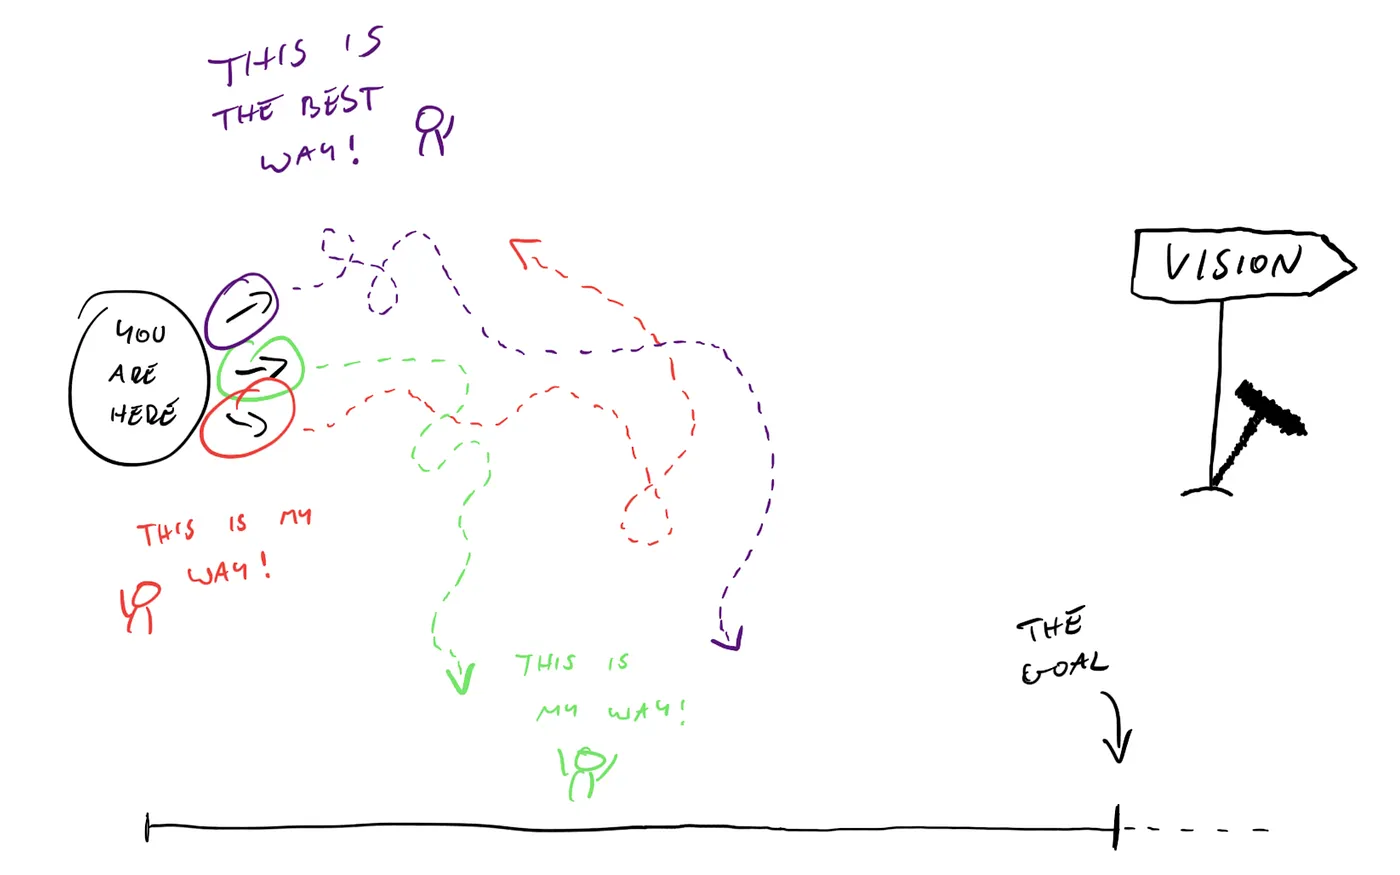 THIS IS
THE BEST
WAY!
VISION
YOU
ARE
HERE
THIS IS MY
WAY!
THIS IS
MY WAY!
THE
GOAL